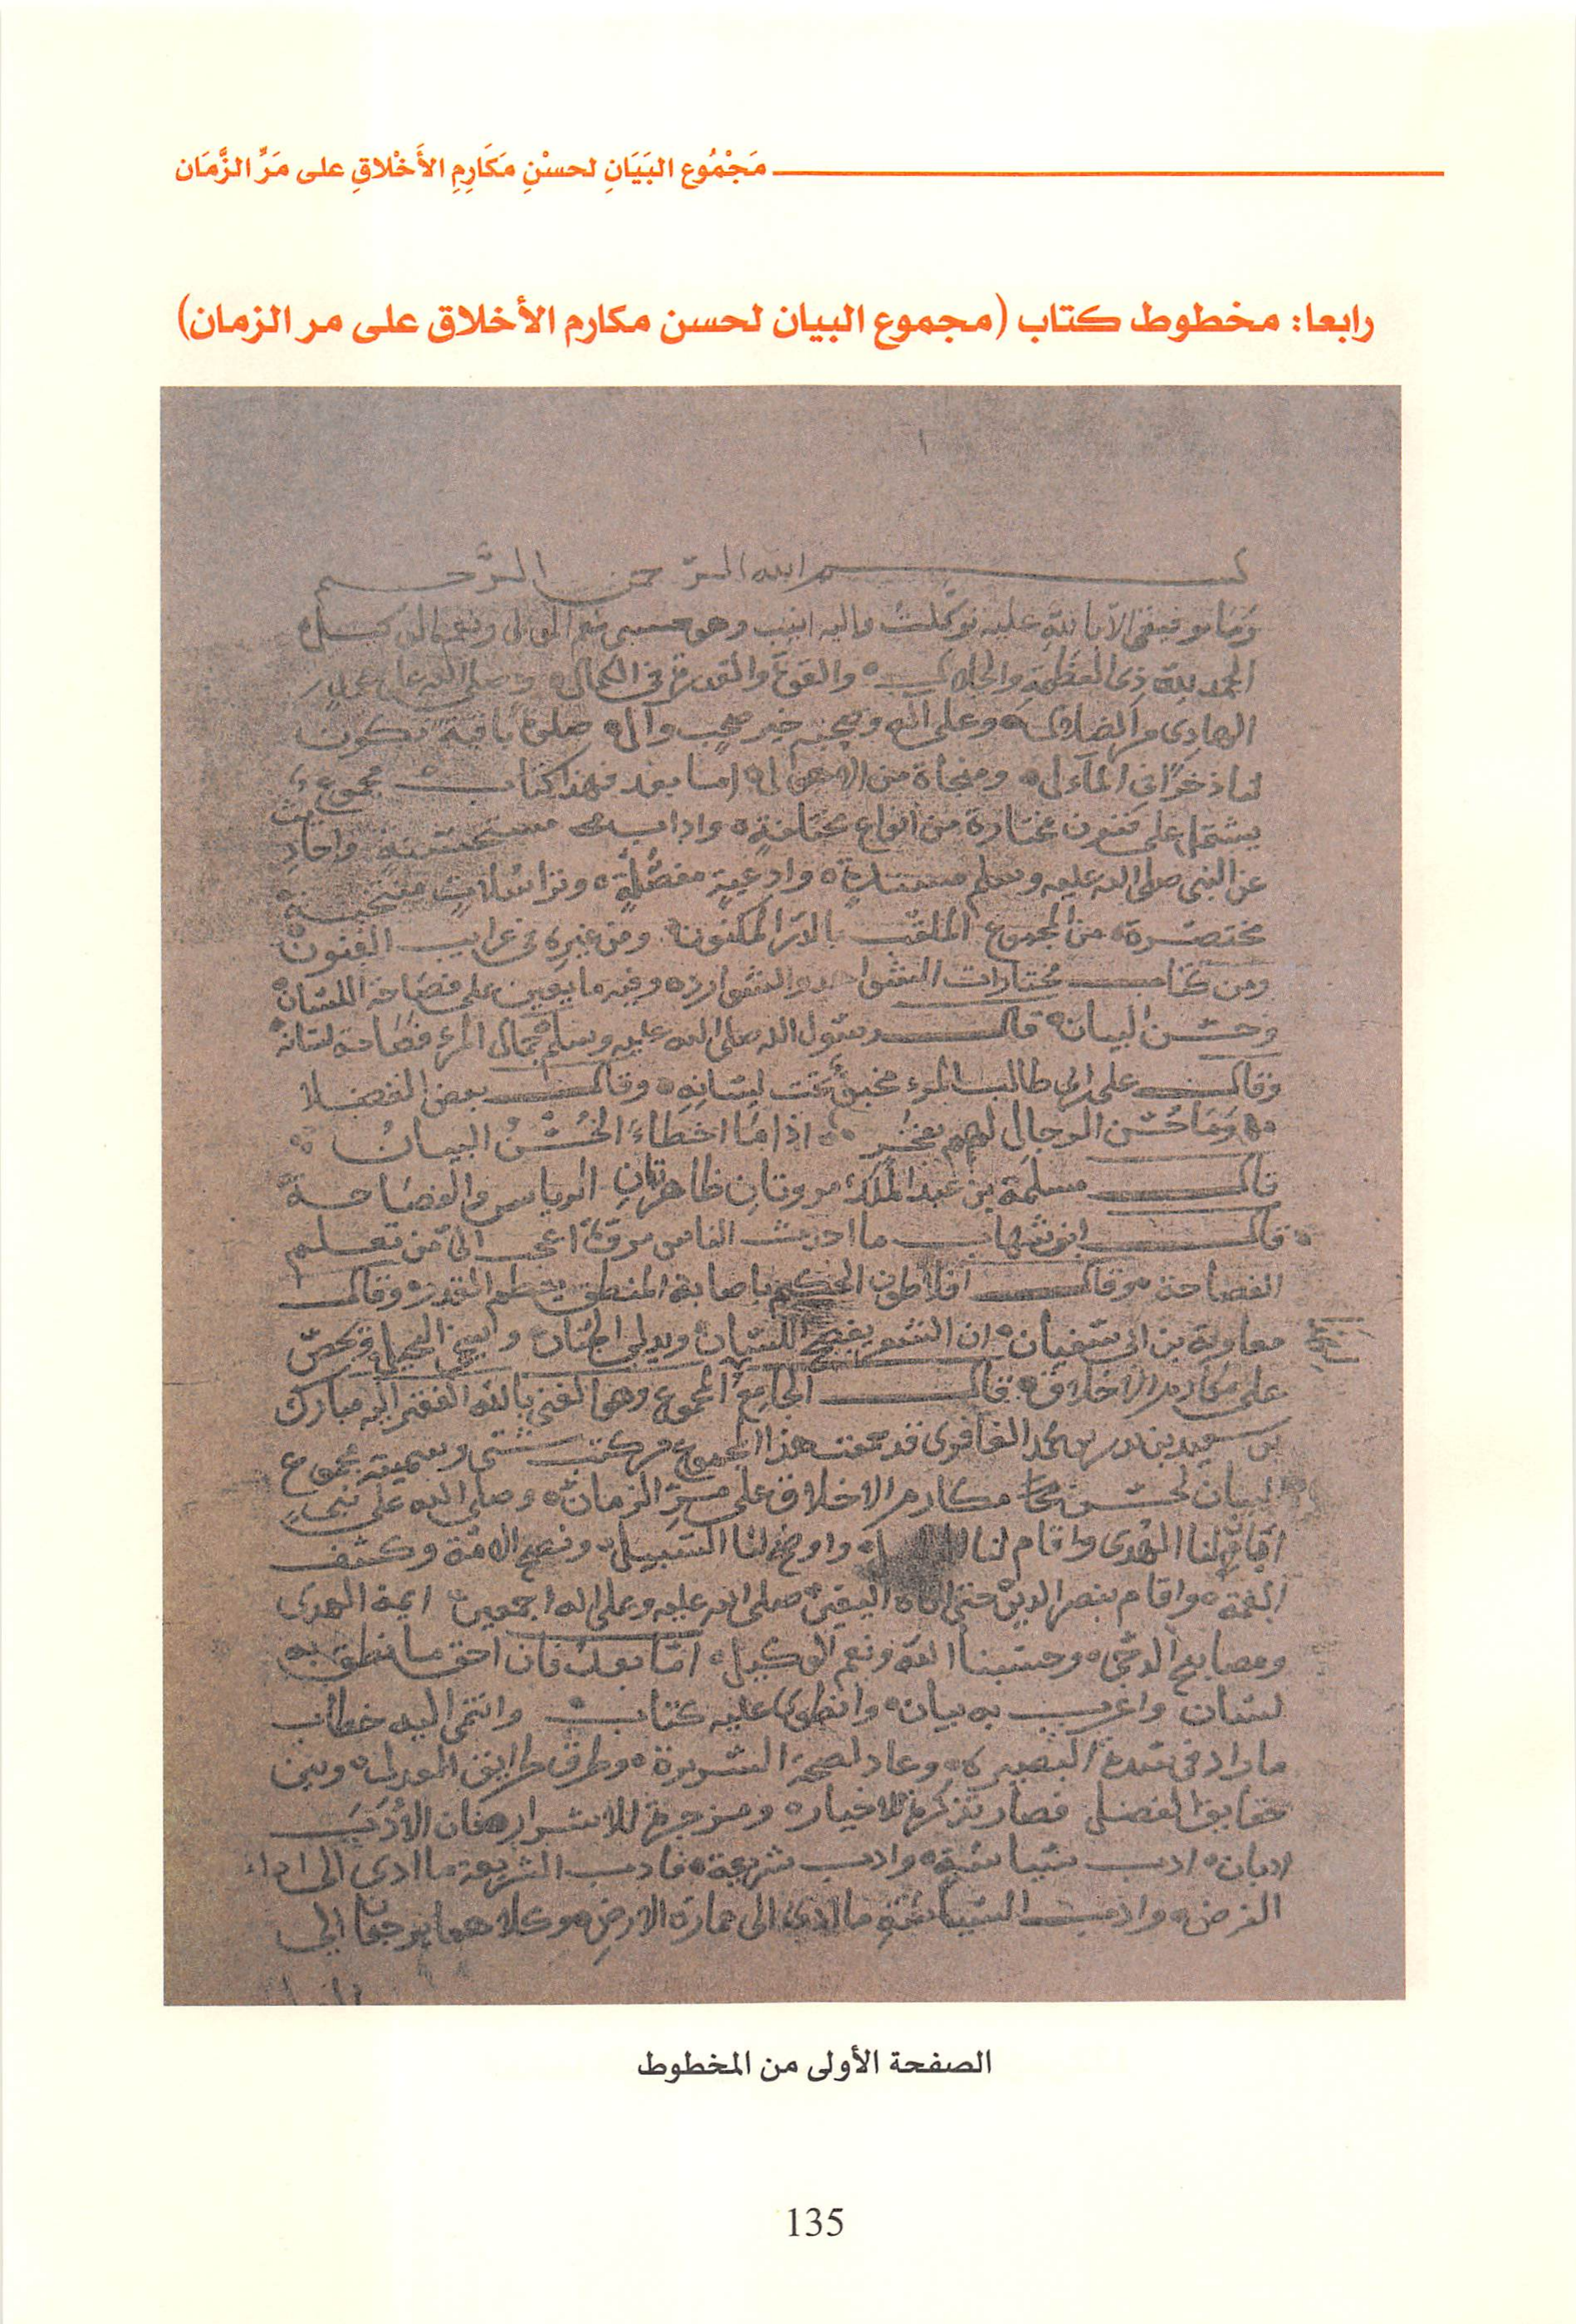 مَجْمُوع البَيَانِ لحسْنِ مَكَارِمِ الأَخْلاقِ على مَرِّ الزَّمَان
رابعا: مخطوط كتاب (مجموع البيان لحسن مكارم الأخلاق على مر الزمان)
بسم الله الرحمن الرحيم
وَمَا توفيقي الا بالله عليه توكلت واليه انيب وهو حسبي نعم المولى ونعم الوكيل
الحمد لله ذي العظمة والجلال والقوة والقدرة في الكمال وصلى الله على محمد
الهادي من الضلال وعلى اله وصحبه خير صحب وآل صلوة باقية تكون
لنا ذخرًا في المآءل ومنجاة من الاهوال اما بعد فهذا كتاب مجموع
يشتمل على فنون مختارة من انواع مختلفة واداب مستحسنة واحاديث
عن النبي صلى الله عليه وسلم مسندة وادعية مفضلة وتراسلات منتخبة
مختصرة من المجموع الملقب بالدر المكنون ومن غيره في غرايب الفنون
ومن كتاب مختارات الشواهد والشوارد وفيه ما يعين على فصاحة اللسان
وحسن البيان قال رسول الله صلى الله عليه وسلم جمال المرء فصاحة لسانه
وقال على بن ابي طالب المرء مخبوّ تحت لسانه وقال بعض الفضلا
وَمَا حُسْن الرجال لهم بفخر اذا ما اخطاء الحُسْنُ البيانُ
قال مسلمة بن عبد الملك مروتانِ ظاهرتانِ الرياس والفصاحة
قال ابن شهاب ما احدث الناس مروة اعجب الىّ من تعلم
الفصاحة وقال افلاطون الحكيم باصابة المنطق يعظم القدر وقال
معاوية بن ابي سفيان ان الشعر يفصح اللسان ويدلي الجنان ويحضّ
على مكارم الاخلاق قال الجامع المجموع وهو الغني بالله الفقير اليه مبارك
بن سعيد بن بدر بن محمد الغافري قد جمعت هذا المجموع من كتب شتى وسميته مجموع
البيان لحسن مكارم الاخلاق على مرِّ الزمان وصلى الله على نبيٍ
لنا الهدى واقام لنا واوضح لنا السبيل ونصح الامة وكشف
الغمة واقام بنصر الدين حتى اتاه اليقين صلى الله عليه وعلى اله اجمعين ايمة الهدى
ومصابيح الدجى وحسبنا الله ونعم الوكيل امّا بعد فان احق ما نطق به
لسان واعرب به بيان وانطوى عليه كتاب وانتمى اليه خطاب
ما زاد في البصيرة وعاد لصحة السريرة وطرق طرايق العدل وبين
حقايق الفضل فصار تذكرة للاخيار ومزجرة للاشرار فان الأدَبَ
ادبان ادب سياسة وادب شريعة فادب الشريعة ما ادى الى اداء
الفرض وادب السياسة ما ادى الى عمارة الارض وكلاهما يرجعان الى
الصفحة الأولى من المخطوط
135